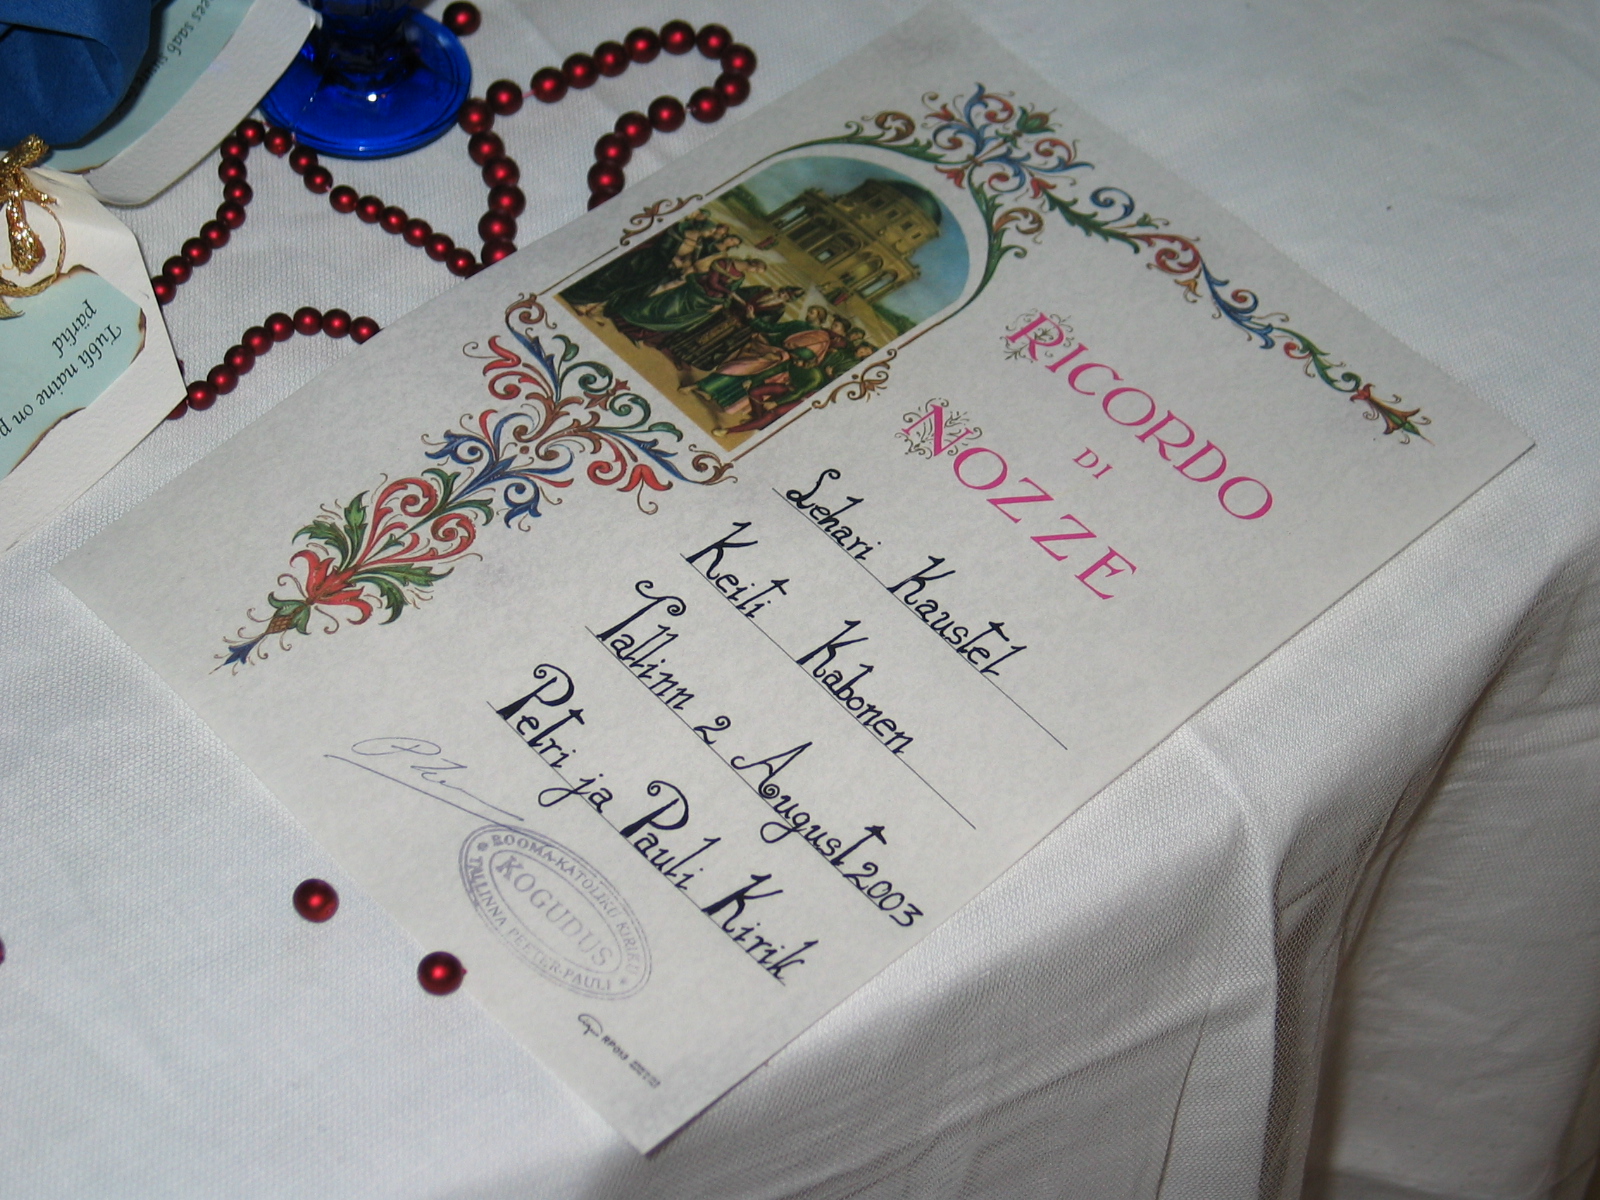 RICORDO
DI
NOZZE
Lehari Kaustel
Keiti Kabonen
Tallinn 2 August 2003
Petri ja Pauli Kirik
ROOMA-KATOLIKU KIRIKU
KOGUDUS
TALLINNA PEETER-PAULI
RP013
Tubli naine on p
pärlid
ees saab